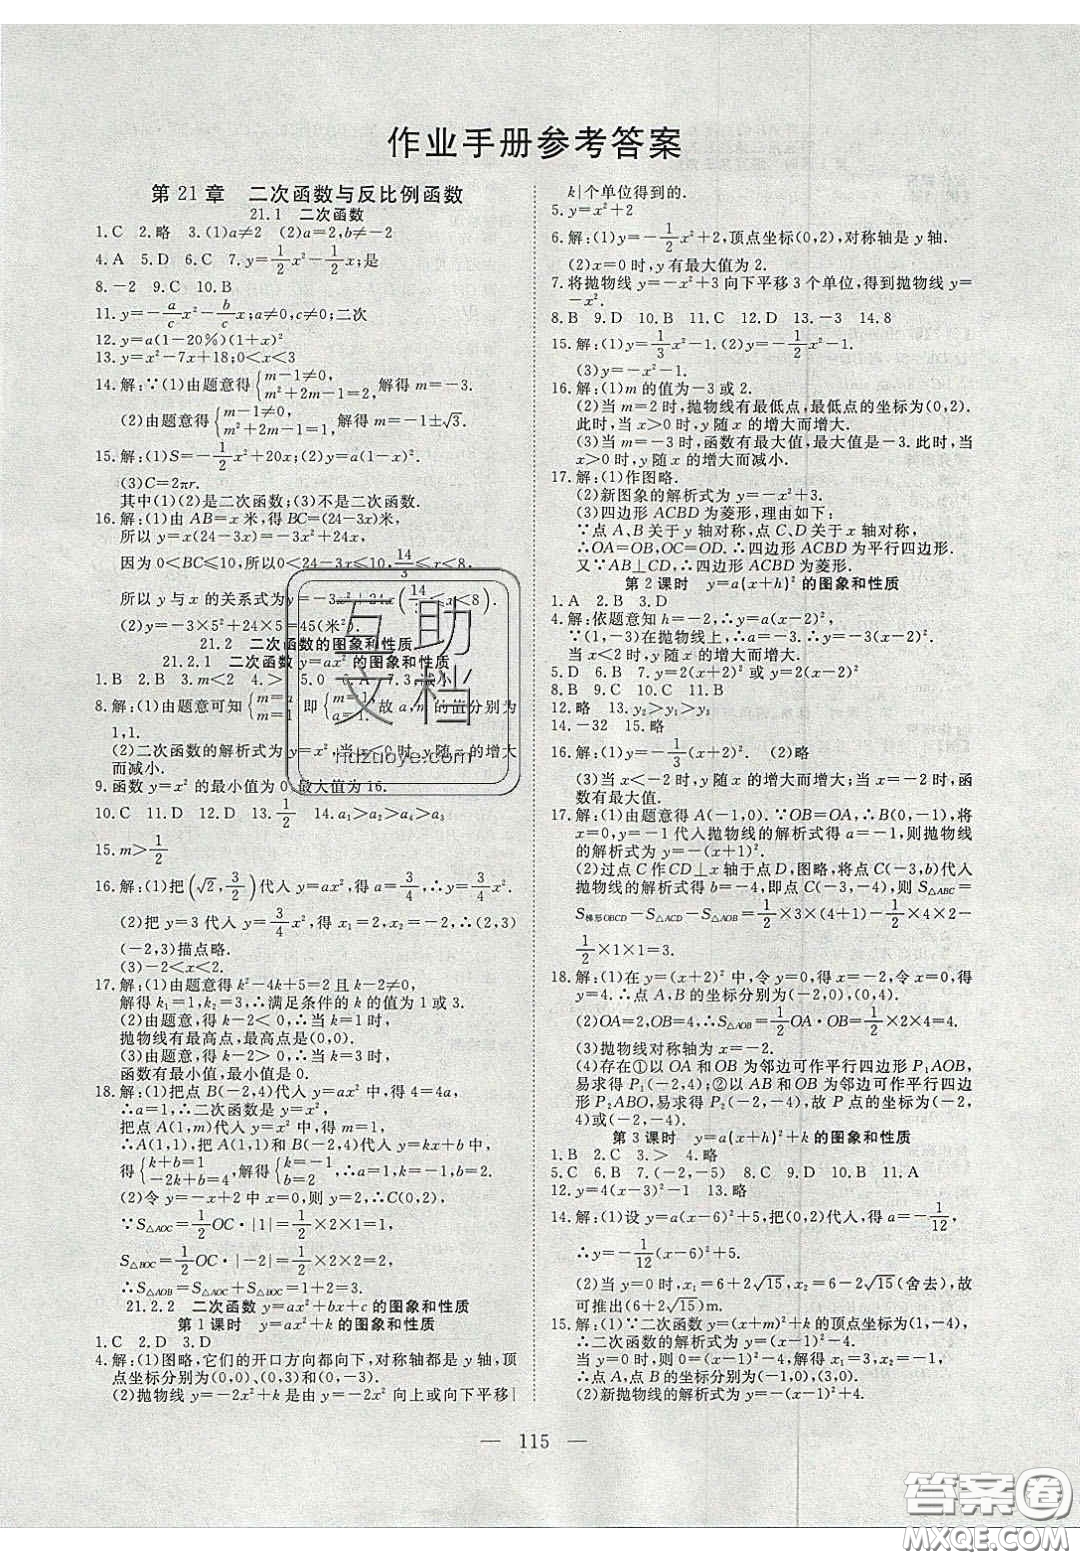 作业手册参考答案
第21章 二次函数与反比例函数
21.1 二次函数
1.C 2.略 3.(1)a≠2 (2)a=2,b≠-2
4.A 5.D 6.C 7.y=1/2x²-1/2x;是
8.-2 9.C 10.B
11.y=-a/cx²-b/cx;a≠0,c≠0;二次
12.y=a(1-20%)(1+x)²
13.y=x²-7x+18;0<x<3
14.解:∵(1)由题意得{m-1≠0, m²+2m-1=2, 解得m=-3.
(2)由题意得{m-1≠0, m²+2m-1=1, 解得m=-1±√3.
15.解:(1)S=-1/2x²+20x;(2)y=x(x-1);
(3)C=2πr.
其中(1)(2)是二次函数;(3)不是二次函数.
16.解:(1)由AB=x米,得BC=(24-3x)米,
所以y=x(24-3x)=-3x²+24x,
因为0<BC≤10,所以0<24-3x≤10,14/3≤x<8,
所以y与x的关系式为y=-3x²+24x(14/3≤x<8).
(2)y=-3×5²+24×5=45(米²).
21.2 二次函数的图象和性质
21.2.1 二次函数y=ax²的图象和性质
1.B 2.B 3.m<2 4.> 5.0 6.A 7.3,小
8.解:(1)由题意可知{m=a, m=1, 即{m=1, a=1. 故a,m的值分别为
1,1.
(2)二次函数的解析式为y=x²,当x<0时,y随x的增大
而减小.
9.函数y=x²的最小值为0,最大值为16.
10.C 11.D 12.D 13.1/2 14.a₁>a₂>a₄>a₃
15.m>1/2
16.解:(1)把(√2,3/2)代入y=ax²,得a=3/4,∴y=3/4x².
(2)把y=3代入y=3/4x²,得x₁=2,x₂=-2,∴(2,3)
(-2,3)描点略.
(3)-2<x<2.
17.解:(1)由题意得k²-4k+5=2且k-2≠0,
解得k₁=1,k₂=3,∴满足条件的k的值为1或3.
(2)由题意,得k-2<0,∴当k=1时,
抛物线有最高点,最高点是(0,0).
(3)由题意,得k-2>0,∴当k=3时,
函数有最小值,最小值是0.
18.解:(1)把点B(-2,4)代入y=ax²中,得4=4a,
∴a=1,∴二次函数是y=x²,
把点A(1,m)代入y=x²中,得m=1,
∴A(1,1),把A(1,1)和B(-2,4)代入y=kx+b中,
得{k+b=1, -2k+b=4, 解得{k=-1, b=2.
(2)令y=-x+2中x=0,则y=2,∴C(0,2),
∵S△AOC=1/2OC·|1|=1/2×2×1=1,
S△BOC=1/2OC·|-2|=1/2×2×2=2,
∴S△AOB=S△AOC+S△BOC=1+2=3.
21.2.2 二次函数y=ax²+bx+c的图象和性质
第1课时 y=ax²+k的图象和性质
1.C 2.D 3.D
4.解:(1)图略,它们的开口方向都向下,对称轴都是y轴,顶
点坐标分别为(0,0)、(0,3)和(0,-3).
(2)抛物线y=-2x²+k是由y=-2x²向上或向下平移|
k|个单位得到的.
5.y=x²+2
6.解:(1)y=-1/2x²+2,顶点坐标(0,2),对称轴是y轴.
(2)x=0时,y有最大值为2.
7.将抛物线y=-x²+3向下平移3个单位,得到抛物线y=
-x².
8.B 9.D 10.B 11.B 12.D 13.-3 14.8
15.解:(1)y=1/3x²-1.(2)y=-1/2x²-1.
(3)y=-x²-1.
16.解:(1)m的值为-3或2.
(2)当m=2时,抛物线有最低点,最低点的坐标为(0,2).
此时,当x>0时,y随x的增大而增大.
(3)当m=-3时,函数有最大值,最大值是-3.此时,当
x>0时,y随x的增大而减小.
17.解:(1)作图略.
(2)新图象的解析式为y=-x²+3.
(3)四边形ACBD为菱形,理由如下:
∵点A、B关于y轴对称,点C、D关于x轴对称,
∴OA=OB,OC=OD.∴四边形ACBD为平行四边形.
又∵AB⊥CD,∴四边形ACBD为菱形.
第2课时 y=a(x+h)²的图象和性质
1.A 2.B 3.D
4.解:依题意知h=-2,∴y=a(x-2)².
∵(1,-3)在抛物线上,∴a=-3.∴y=-3(x-2)².
当x<2时,y随x的增大而增大.
5.D 6.B 7.y=2(x+2)²或y=2(x-2)²
8.B 9.B 10.C 11.B
12.略 13.y₂>y₁>y₃
14.-32 15.略
16.解:(1)y=-1/3(x+2)². (2)略
(3)当x<-2时,y随x的增大而增大;当x=-2时,函
数有最大值.
17.解:(1)由题意得A(-1,0).∵OB=OA,∴B(0,-1),将
x=0,y=-1代入抛物线的解析式得a=-1,则抛物线
的解析式为y=-(x+1)².
(2)过点C作CD⊥x轴于点D,图略,将点C(-3,b)代入
抛物线的解析式得b=-4,即点C(-3,-4),则S△ABC=
S梯形OBCD-S△ACD-S△AOB=1/2×3×(4+1)-1/2×4×2-
1/2×1×1=3.
18.解:(1)在y=(x+2)²中,令y=0,得x=-2,令x=0,得
y=4.∴点A、B的坐标分别为(-2,0)、(0,4).
(2)OA=2,OB=4,∴S△AOB=1/2OA·OB=1/2×2×4=4.
(3)抛物线对称轴为x=-2.
(4)存在①以OA和OB为邻边可作平行四边形P₁AOB,
易求得P₁(-2,4);②以AB和OB为邻边可作平行四边形
P₂ABO,易求得P₂(-2,-4),故P点的坐标为(-2,
4)或(-2,-4).
第3课时 y=a(x+h)²+k的图象和性质
1.B 2.C 3.> 4.略
5.C 6.B 7.(-2,-5) 8.C 9.D 10.B 11.A
12.y=4(x-3)²-1 13.略
14.解:(1)设y=a(x-6)²+5,把(0,2)代入,得a=-1/12,
∴y=-1/12(x-6)²+5.
(2)当y=0时,x₁=6+2√15,x₂=6-2√15(舍去),故
可推出(6+2√15)m.
15.解:(1)∵二次函数y=(x+m)²+k的顶点坐标为(1,-4),
∴二次函数的解析式为y=(x-1)²-4.
当y=0时,0=(x-1)²-4,解得x₁=3,x₂=-1,
∴点A,点B的坐标分别为(-1,0),(3,0).
(2)新抛物线的解析式为y=-(x-1)²+4.
115
互助
文档
hdzuoye.com
答案圈
MXQE.COM